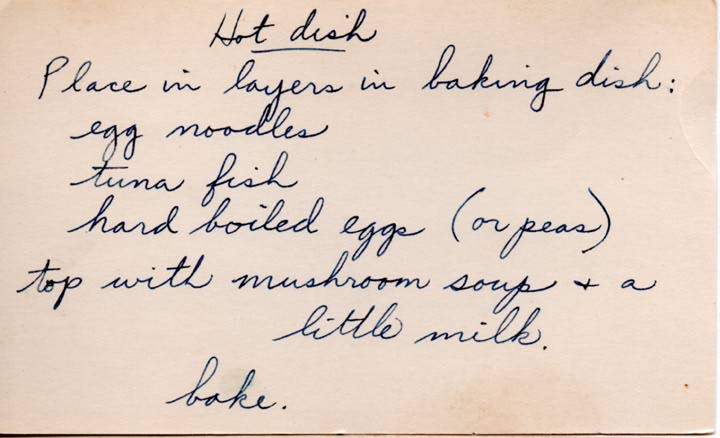 Hot dish
Place in layers in baking dish:
egg noodles
tuna fish
hard boiled eggs (or peas)
top with mushroom soup + a
little milk.
bake.